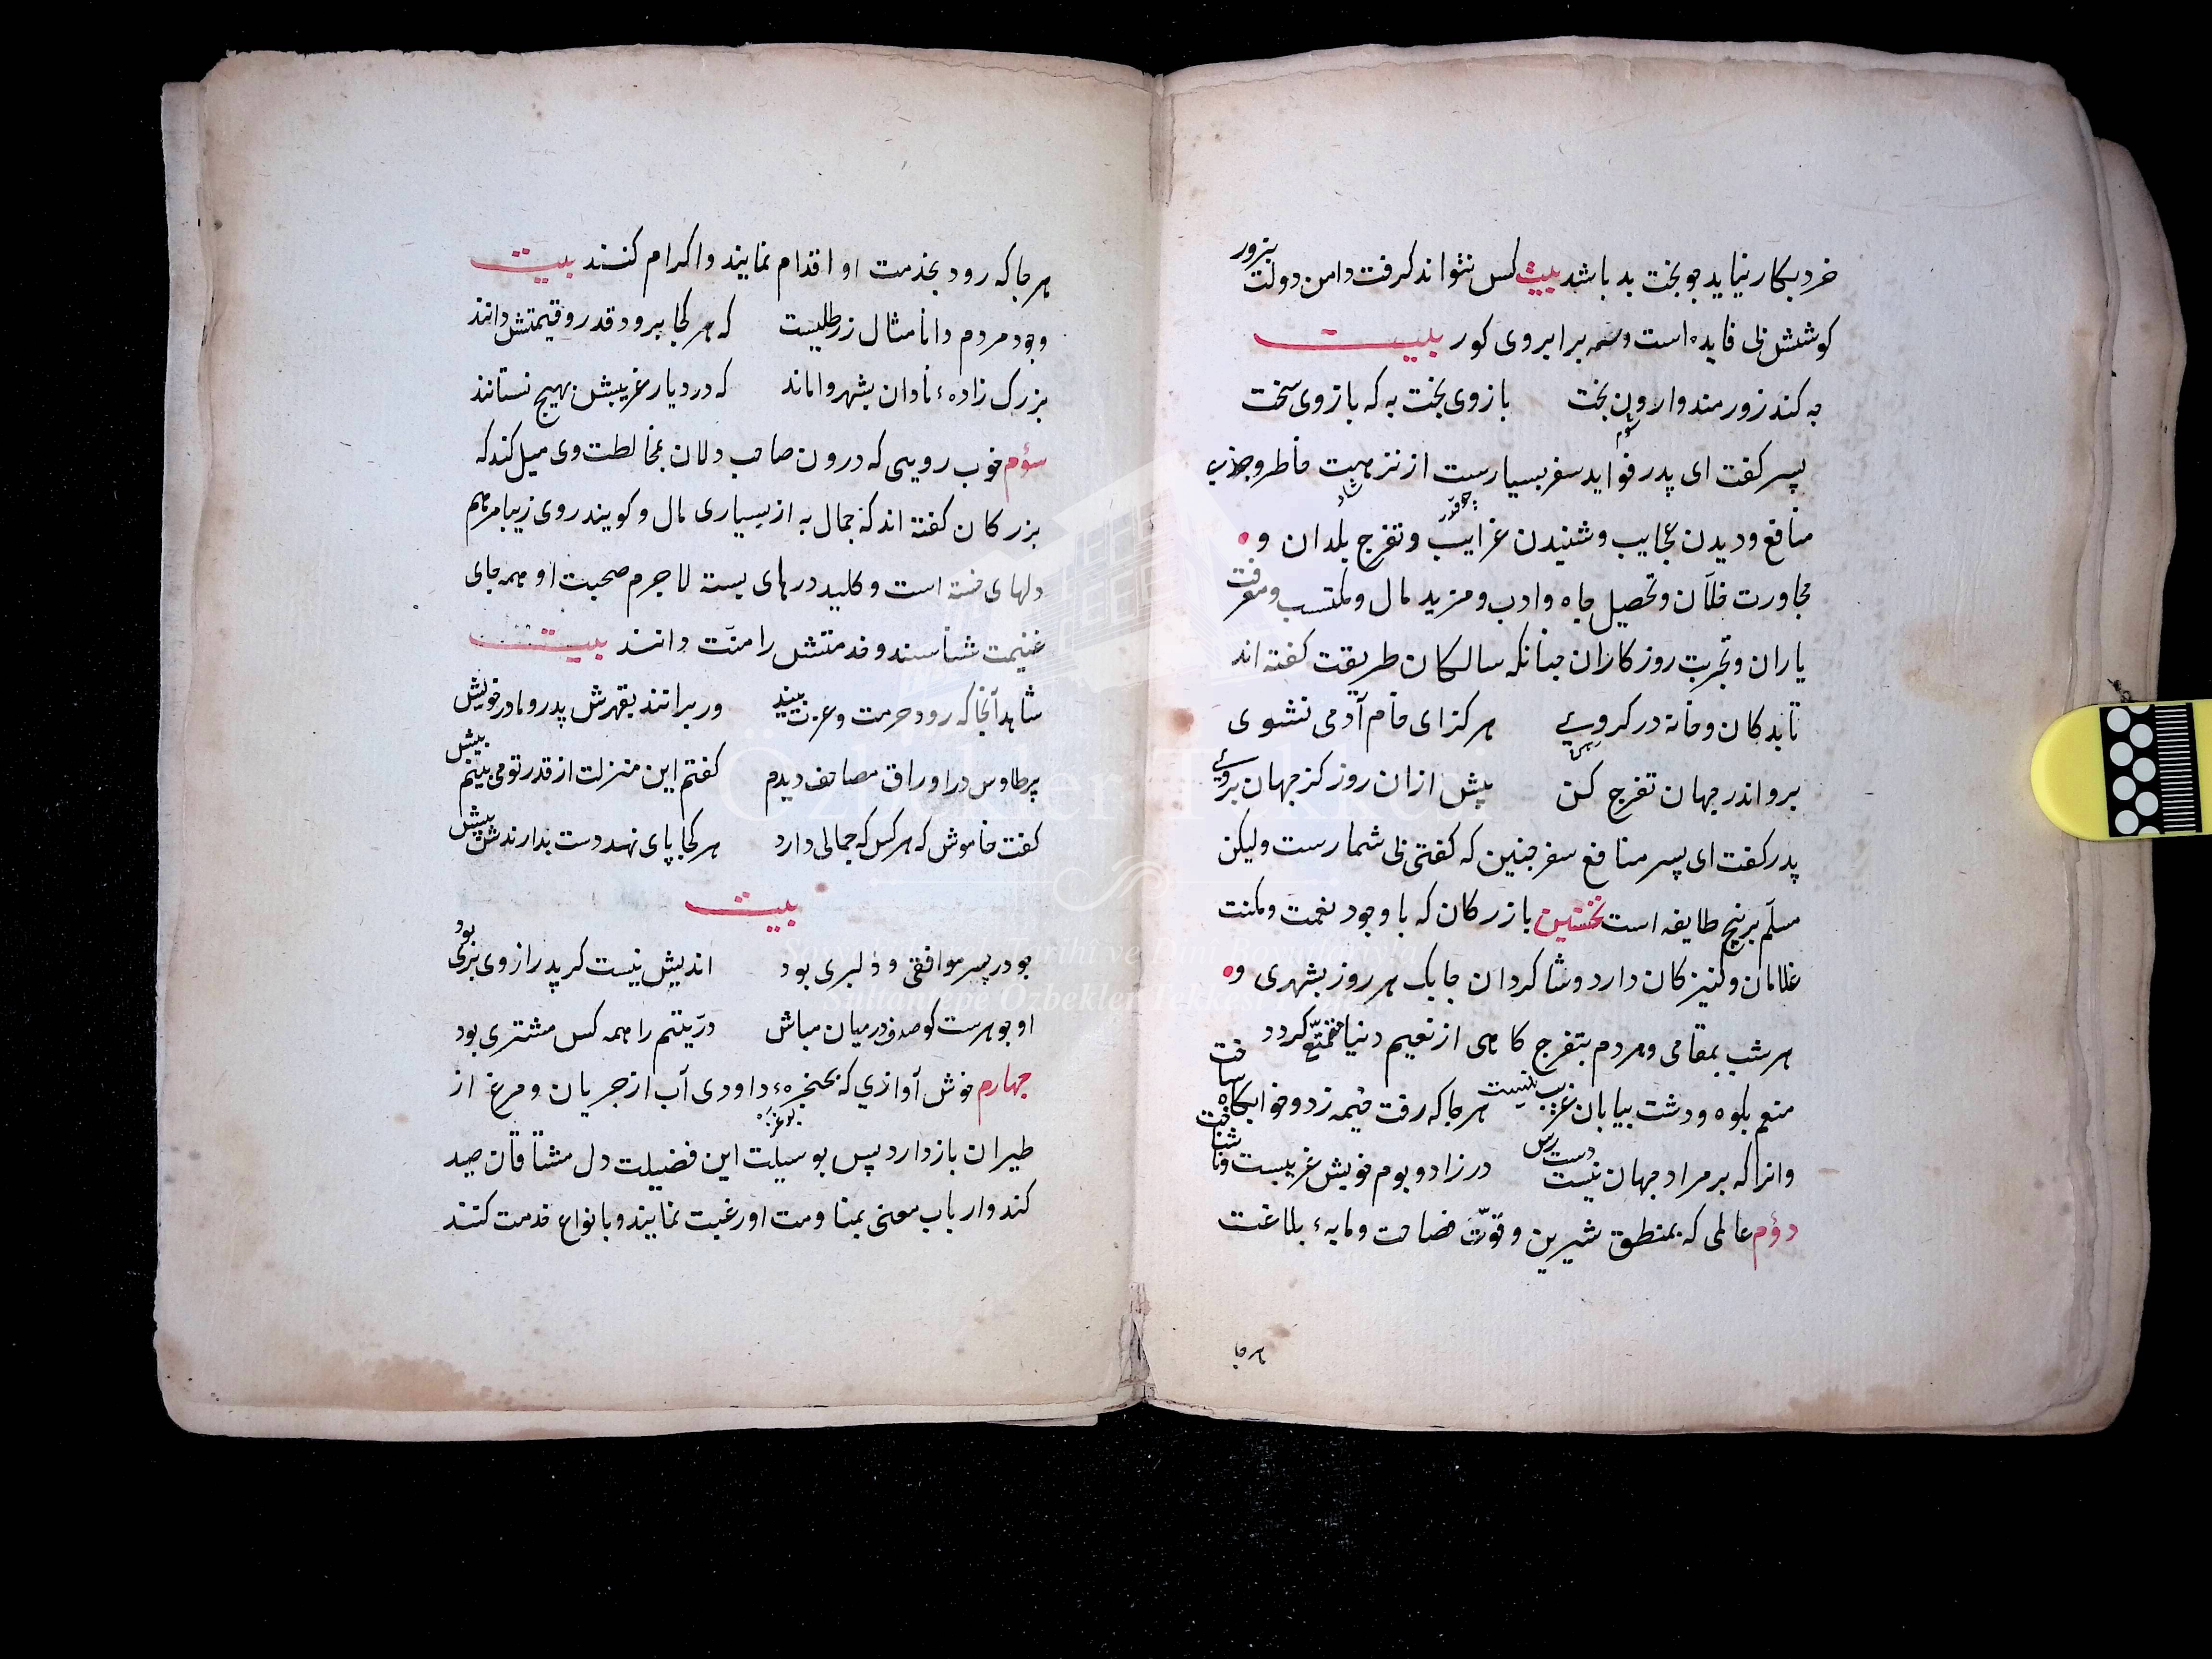 خرد بكار نيايد چو بخت بد باشد بيت كس نتواند كرفت دامن دولت بزور
كوشش بى فايده است وسمه بر ابروى كور بيت
چه كند زورمند وارون بخت بازوى بخت به كه بازوى سخت
شوم
پسر كفت اى پدر فوايد سفر بسيارست از نزهت خاطر و جذب
شاد چوقدر
منافع و ديدن عجايب و شنيدن غرايب و تفرج بلدان و
مجاورت خلّان و تحصيل جاه و ادب و مزيد مال و مكتسب و معرفت
ياران و تجربت روزكاران چنانكه سالكان طريقت كفته اند
تا بدكان و خانه در كروى هركز اى خام آدمى نشوى
برو اندر جهان تفرج كن پيش ازان روز كز جهان بروى
پدر كفت اى پسر منافع سفر چنين كه كفتى بى شمارست وليكن
مسلّم بر پنج طايفه است نخستين بازركان كه با وجود نعمت و مكنت
غلامان و كنيزكان دارد و شاكردان چابك هر روز بشهرى و
هر شب بمقامى و هردم بتفرج كاهى از نعيم دنيا متمتّع كردد
منعم بكوه و دشت بيابان غريب نيست هر جا كه رفت خيمه زد و خوابكاه ساخت
وانرا كه بر مراد جهان نيست دست رس در زاد و بوم خويش غريبست و ناشناخت
دؤم عالمى كه بمنطق شيرين و قوّت فصاحت و مايۀ بلاغت
هر جا
هر جا كه رود بخدمت او اقدام نمايند و اكرام كنند بيت
وجود مردم دانا مثال زر طليست كه هر كجا برود قدر و قيمتش دانند
بزرك زادۀ نادان بشهر واماند كه در ديار غريبش بهيچ نستانند
سؤم خوب رويى كه درون صاحب دلان بمخالطت وى ميل كند كه
بزركان كفته اند كه جمال به از بسيارى مال و كويند روى زيبا مرهم
دلهاى خسته است و كليد درهاى بسته لاجرم صحبت او همه جاى
غنيمت شناسند و خدمتش را منّت دانند بيت
شاهد آنجا كه رود حرمت و عزت بيند ور برانند بقهرش پدر و مادر خويش
پر طاوس در اوراق مصاحف ديدم كفتم اين منزلت از قدر تو مى بينم بيش
كفت خاموش كه هر كس كه جمالى دارد هر كجا پاى نهد دست بدارندش پيش
بيت
چو در پسر موافقى و دلبرى بود انديش نيست كر پدر از وى برى بود
او جوهرست كو صدف در ميان مباش درّ يتيم را همه كس مشترى بود
چهارم خوش آوازي كه بحنجرۀ داودى آب از جريان و مرغ از
بوغز
طيران باز دارد پس بوسيلت اين فضيلت دل مشتاقان صيد
كند و ارباب معنى بمناومت او رغبت نمايند و بانواع خدمت كنند